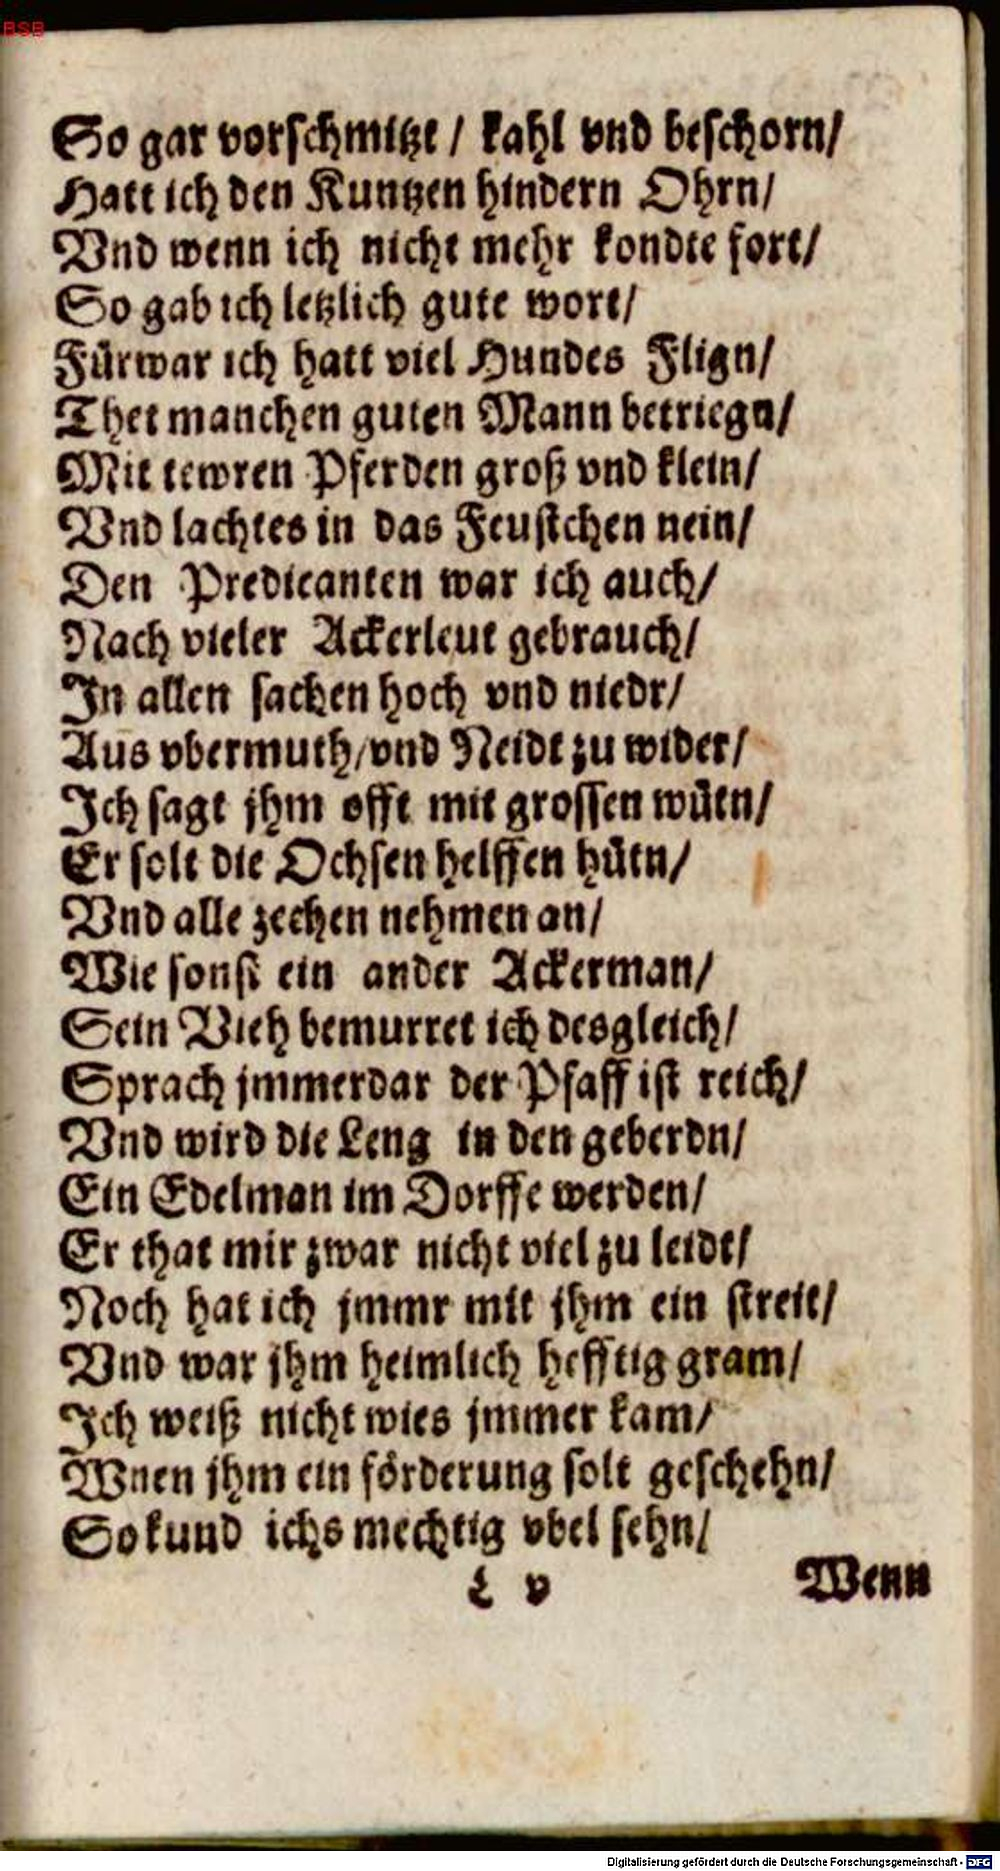 BSB
So gar vorschmitzt / kahl vnd beschorn/
Hatt ich den Kuntzen hindern Ohrn/
Vnd wenn ich nicht mehr kondte fort/
So gab ich letzlich gute wort/
Fürwar ich hatt viel Hundes Flign/
Thet manchen guten Mann betriegn/
Mit tewren Pferden groß vnd klein/
Vnd lachtes in das Feustchen nein/
Den Predicanten war ich auch/
Nach vieler Ackerleut gebrauch/
In allen sachen hoch vnd niedr/
Aus vbermuth/vnd Neidt zu wider/
Ich sagt jhm offt mit grossen wütn/
Er solt die Ochsen helffen hütn/
Vnd alle zechen nehmen an/
Wie sonst ein ander Ackerman/
Sein Vieh bemurret ich desgleich/
Sprach jmmerdar der Pfaff ist reich/
Vnd wird die Leng in den geberdn/
Ein Edelman im Dorffe werden/
Er that mir zwar nicht viel zu leidt/
Noch hat ich jmmr mit jhm ein streit/
Vnd war jhm heimlich hefftig gram/
Ich weiß nicht wies jmmer kam/
Wnen jhm ein förderung solt geschehn/
So kund ichs mechtig vbel sehn/
L v Wenn
Digitalisierung gefördert durch die Deutsche Forschungsgemeinschaft - DFG